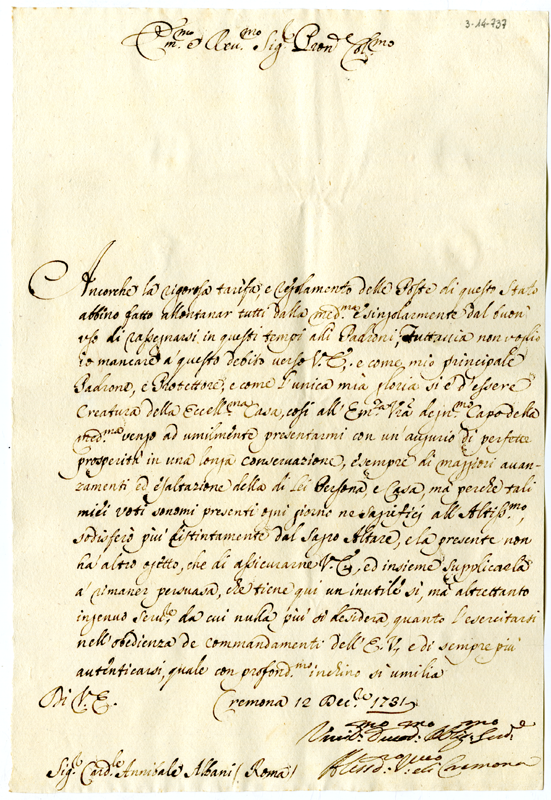 3-14-737
Em.mo e Rev.mo Sig.r Pron.e Col.mo
Ancorche la rigorosa tarifa, e regolamento delle Poste di questo Stato
abbino fatto allontanar tutti dalla med.ma e singolarmente dal buon
uso di rassegnarsi in questi tempi alli Padroni, Tuttavia non voglio
io mancare à questo debito verso V. E., e come mio principale
Padrone, e Protettore, e come l'unica mia gloria si è d'essere
Creatura della Eccell.ma Casa, così all' Em.za V.ra degn.mo Capo della
med.ma vengo ad umilmente presentarmi con un' augurio di perfette
prosperità in una longa conservazione, e sempre di maggiori avan-
zamenti ed esaltazione della di Lei Persona e Casa, mà perche tali
miei voti sono mi presenti ogni giorno ne Sagrificj all' Altiss.mo,
sodisferò più distintamente dal Sagro Altare, e la presente non
hà altro ogetto, che di assicurarne V. E., ed insieme supplicarla
à rimaner persuasa, che tiene qui un inutile sì, mà altrettanto
ingenuo Serv.e da cui nulla più si desidera, quanto l'esercitarsi
nell' obedienza de commandamenti dell' E. V. e di sempre più
autenticarsi, quale con profond.mo inchino si umilia
Di V. E. Cremona 12 Dec.e 1731
Umil.mo Devot.mo Obl.mo Serd.e
Aless.dro Vesc.vo di Cremona
Sig.r Card.le Annibale Albani / Roma /